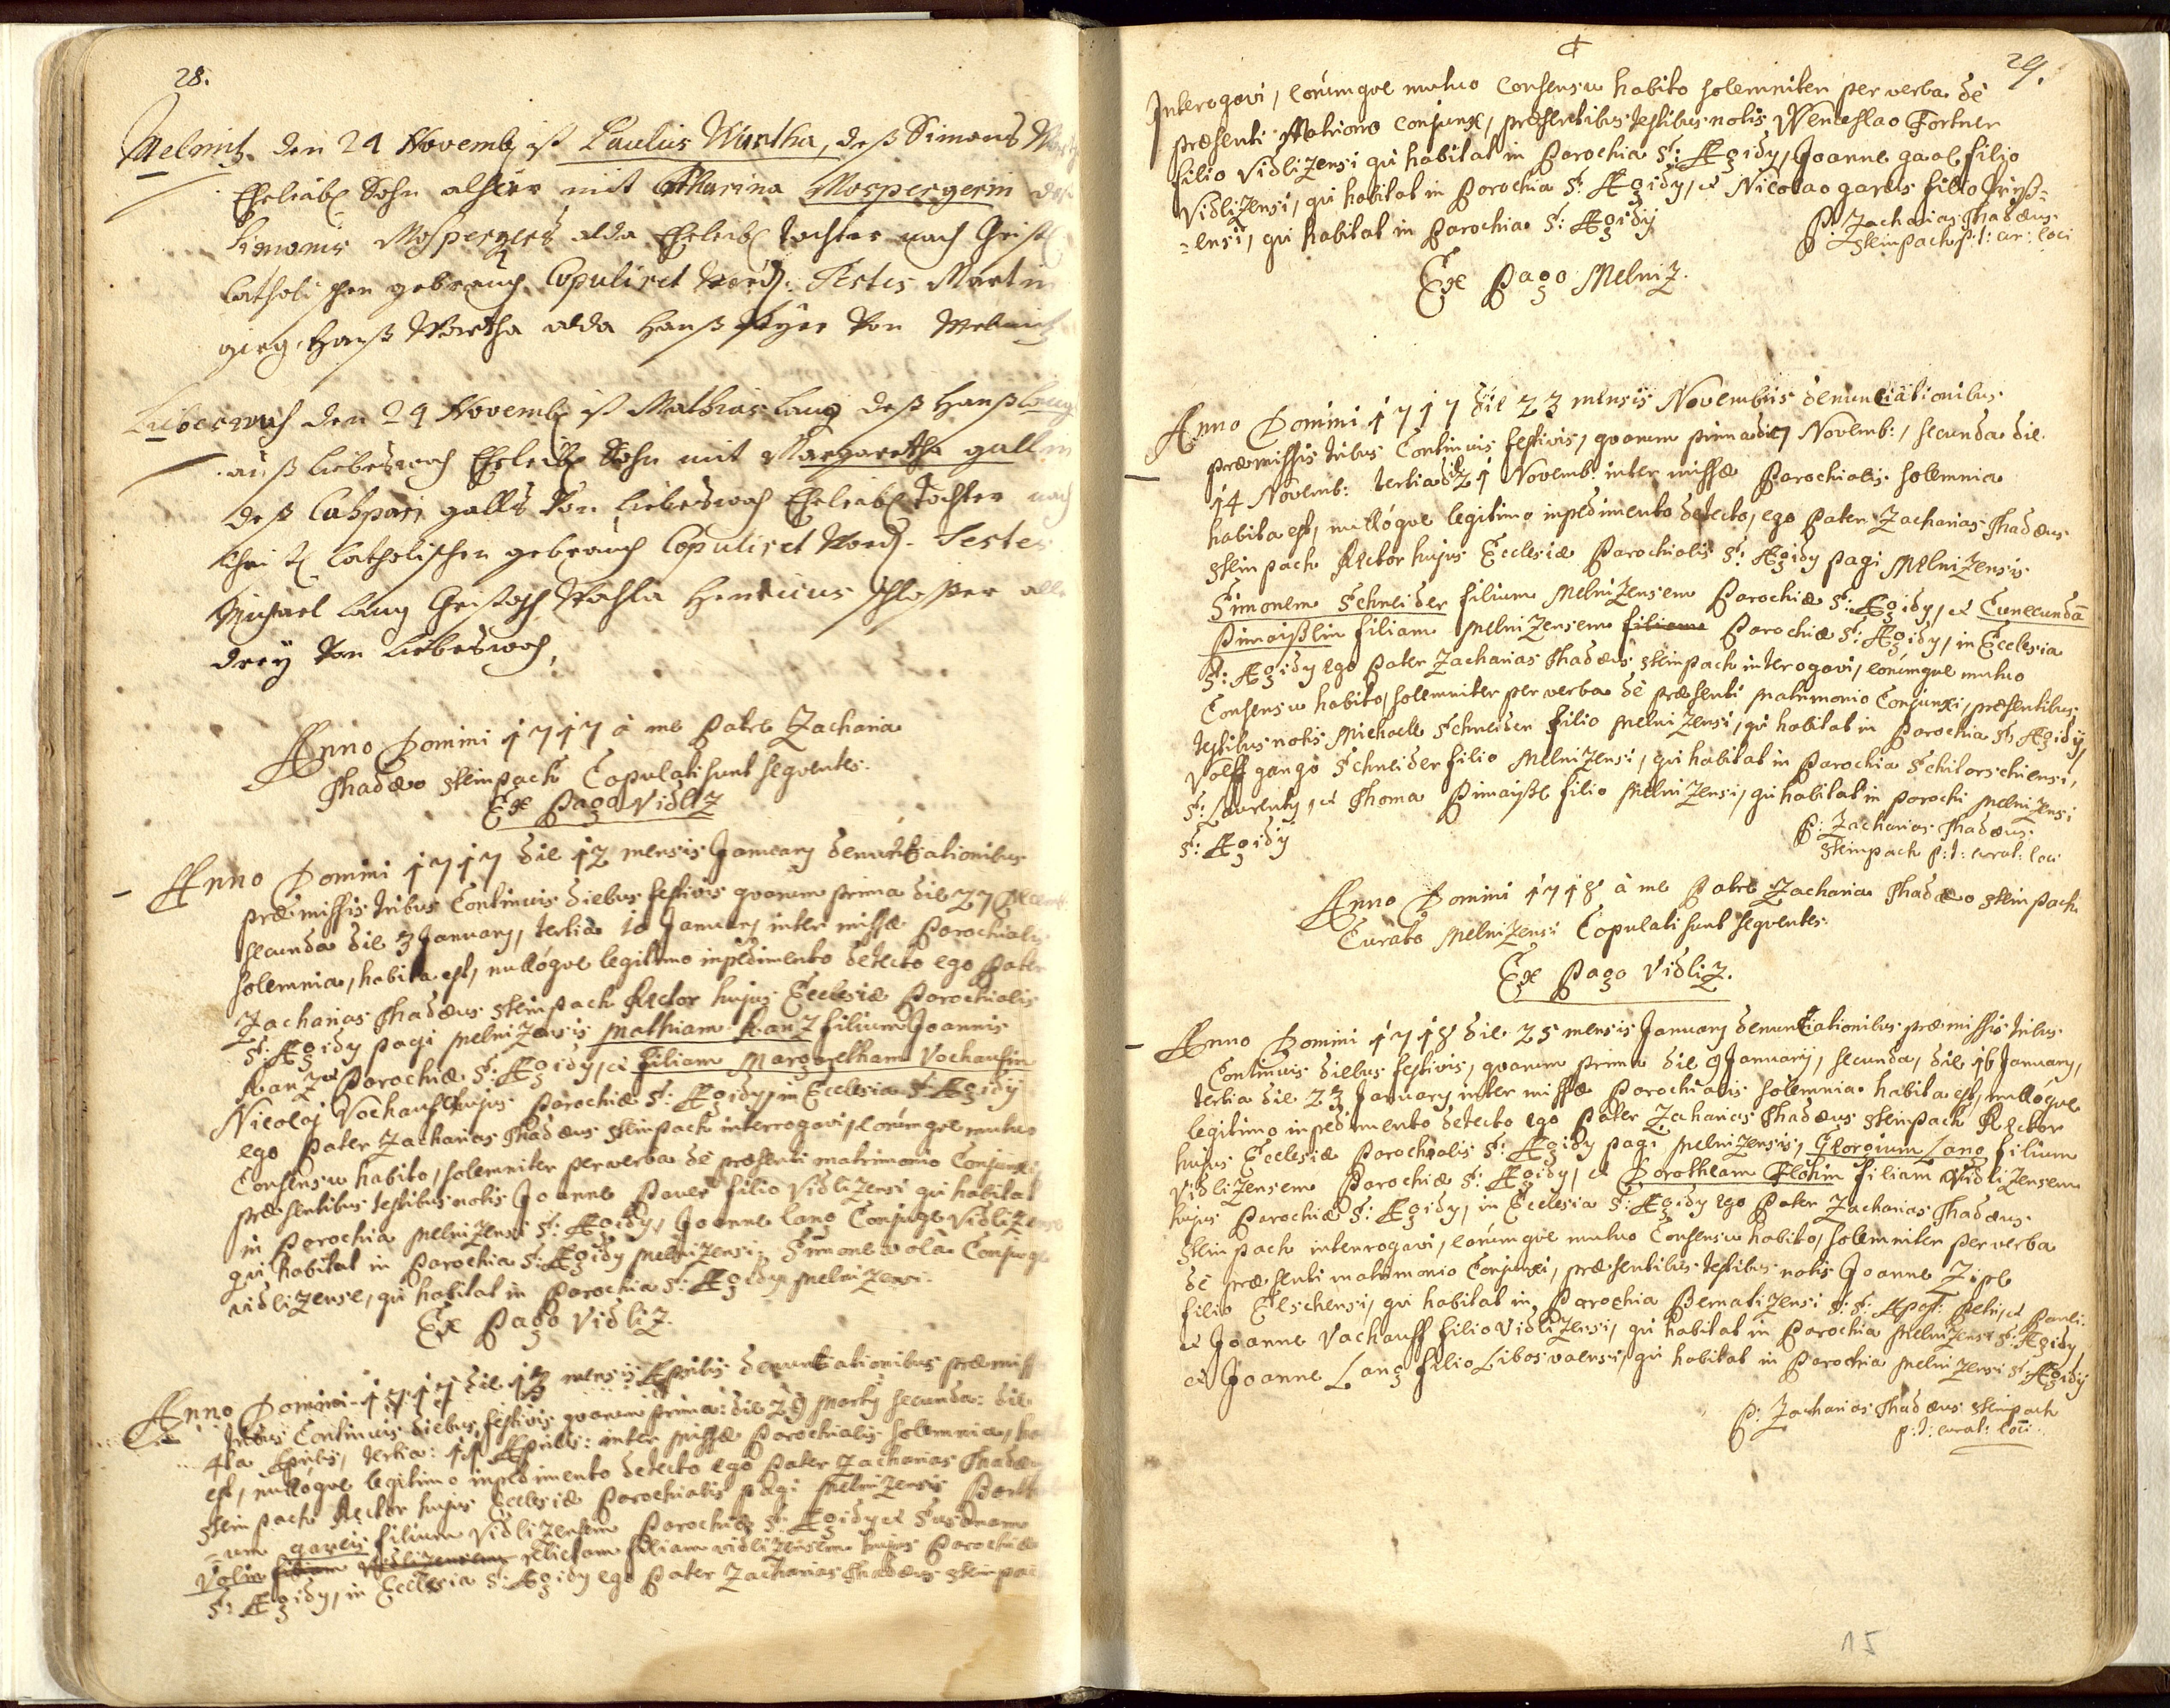 28.
Melnitz. den 24 Novemb ist Paulus Wurtha, deß Simons
Eheleibl Sohn alhier mit Catharina Mospergerin deß
Simonis Mospergers alda Eheleibl Tochter nach Christl
Catholischen gebrauch Copuliret word: Testes Martin
Hanß Wurtha alda Hanß von Melnitz
Liebeswoh den 24 Novemb ist Mathias Lang deß Hanß Lang
auß Liebeswoh Eheleibl Sohn mit Margaretha gallin
deß Caspari galls von Liebeswoh Eheleibl Tochter nach
Catholischen gebrauch Copuliret word. Testes
Michael Lang Christoph Henricus Schlosser alle
drey von Liebeswoh,
Anno Domini 1717 à me Patre Zacharia
Thadæo Steinpach Copulati sunt seqventes.
Ex Pago Vidliz
Anno Domini 1717 die 12 mensis January denuntiationibus
præmissis tribus Continuis diebus festivis qvarum prima die 27 Decemb
secunda die 3 January, tertia 10 January inter missæ Parochialis
solemnia, habita est, nullóqve legitimo inpedimento detecto ego Pater
Zacharias Thadæus Steinpach Rector hujus Ecclesiæ Parochialis
S: Ægidy pagi Melnizensis Mathiam Ranz filium Joannis
Ranz Parochiæ S: Ægidy, et filiam Margaretham Vochaufin
Nicolai Vochauf hujus Parochiæ S: Ægidy, in Ecclesia S: Ægidy
ego Pater Zacharias Thadæus Steinpach interrogavi, eorúmqve mutuo
Consensu habito, solemniter per verba dè præsenti matrimonio Conjunxi
præsentibus testibus notis Joanne Paver filio Vidlizensi qui habitat
in Parochia Melnizensi S: Ægidy, Joanne Lang Conjuge Vidlizense
qvi habitat in Parochia S: Ægidy Melnizensi: Simone Conjuge
vidlizense, qui habitat in Parochia S: Ægidy Melnizensi.
Ex Pago Vidliz.
Anno Domini 1717 die 13 mensis Aprilis denuntiationibus præmissis
tribus Continuis diebus festivis qvarum prima: die 29 Marty secunda: die
4ta Aprilis, tertia: 11 Aprilis: inter missæ Parochialis solemnia, habita
est, nullóqve legitimo inpedimento detecto ego Pater Zacharias Thadæus
Steinpach Rector hujus Ecclesiæ Parochialis pagi Melnizensis
=um gareis filium Vidlizensem Parochiæ S: Ægidy et Susanam
Volin filiam Vidlizensem relictam filiam vidlizensem hujus Parochiæ
S: Ægidy, in Ecclesia S: Ægidy ego Pater Zacharias Thadæus Steinpach
29.
Interogavi, eorúmqve mutuo Consensu habito solemniter per verba dè
præsenti Matrimo conjunx, præsentibus testibus notis Wenceslao Fortner
filio Vidlizensi qui habitat in Parochia S: Ægidy, Joanne filio
Vidlizensi, qui habitat in Parochia S: Ægidy, et Nicolao gareis filio
=ensi, qui habitat in Parochia S: Ægidy
P: Zacharias Thadæus
Steinpach p:t: cur: loci
Ex Pago Melniz.
Anno Domini 1717 die 23 mensis Novembris denuntiationibus
præmissis tribus Continuis festivis, qvarum prima die 7 Novemb:, secunda die
14 Novemb: tertia die 21 Novemb: inter missæ Parochialis solemnia
habita est, nullóqve legitimo inpedimento detecto, ego Pater Zacharias Thadæus
Steinpach Rector hujus Ecclesiæ Parochialis S: Ægidy pagi Melnizensis
Simonem Schneider filium Melnizensem Parochiæ S: Ægidy, et Cunecundā
Pimaißlin filiam Melnizensem filiam Parochiæ S: Ægidy, in Ecclesia
S: Ægidy ego Pater Zacharias Thadæus Steinpach interogavi, eorúmqve mutuo
Consensu habito, solemniter per verba dè præsenti matrimonio Conjunxi, præsentibus
testibus notis Michaele Schneider filio Melnizensi, qui habitat in Parochia S: Ægidy,
Volffgango Schneider filio Melnizensi, qui habitat in Parochia Schitorschensi,
S: Laurenty, et Thoma Pimaißl filio Melnizensi, qui habitat in Parochi Melnizensi
S: Ægidy
P: Zacharias Thadæus
Steinpach p:t: curat: loci
Anno Domini 1718 à me Patre Zacharia Thadæo Steinpach
Curato Melnizensi Copulati sunt seqventes.
Ex Pago Vidliz.
Anno Domini 1718 die 25 mensis January denuntiationibus præmissis tribus
Continuis diebus festivis, qvarum prima die 9 January, secunda, die 16 January,
tertia die 23 January inter missæ Parochialis solemnia habita est, nullóqve
legitimo inpedimento detecto ego Pater Zacharias Thadæus Steinpach Rector
hujus Ecclesiæ Parochialis S: Ægidy pagi Melnizensis, Georgium Lang filium
Vidlizensem Parochiæ S: Ægidy, et Dorotheam Flohin filiam Vidlizensem
hujus Parochiæ S: Ægidy, in Ecclesia S: Ægidy ego Pater Zacharias Thadæus
Steinpach interrogavi, eorúmqve mutuo Consensu habito, solemniter per verba
dè præsenti matrimonio Conjunxi, præsentibus testibus notis Joanne Zipl
filio qui habitat in Parochia Bernatizensi S: S: Apost: Petri, et Pauli
et Joanne Vachauff filio Vidlizensi, qui habitat in Parochia Melnizensi S: Ægidy,
et Joanne Lang filio Libosvaensi, qui habitat in Parochia Melnizensi S: Ægidy
P: Zacharias Thadæus Steinpach
p:t: curat: loci.
15